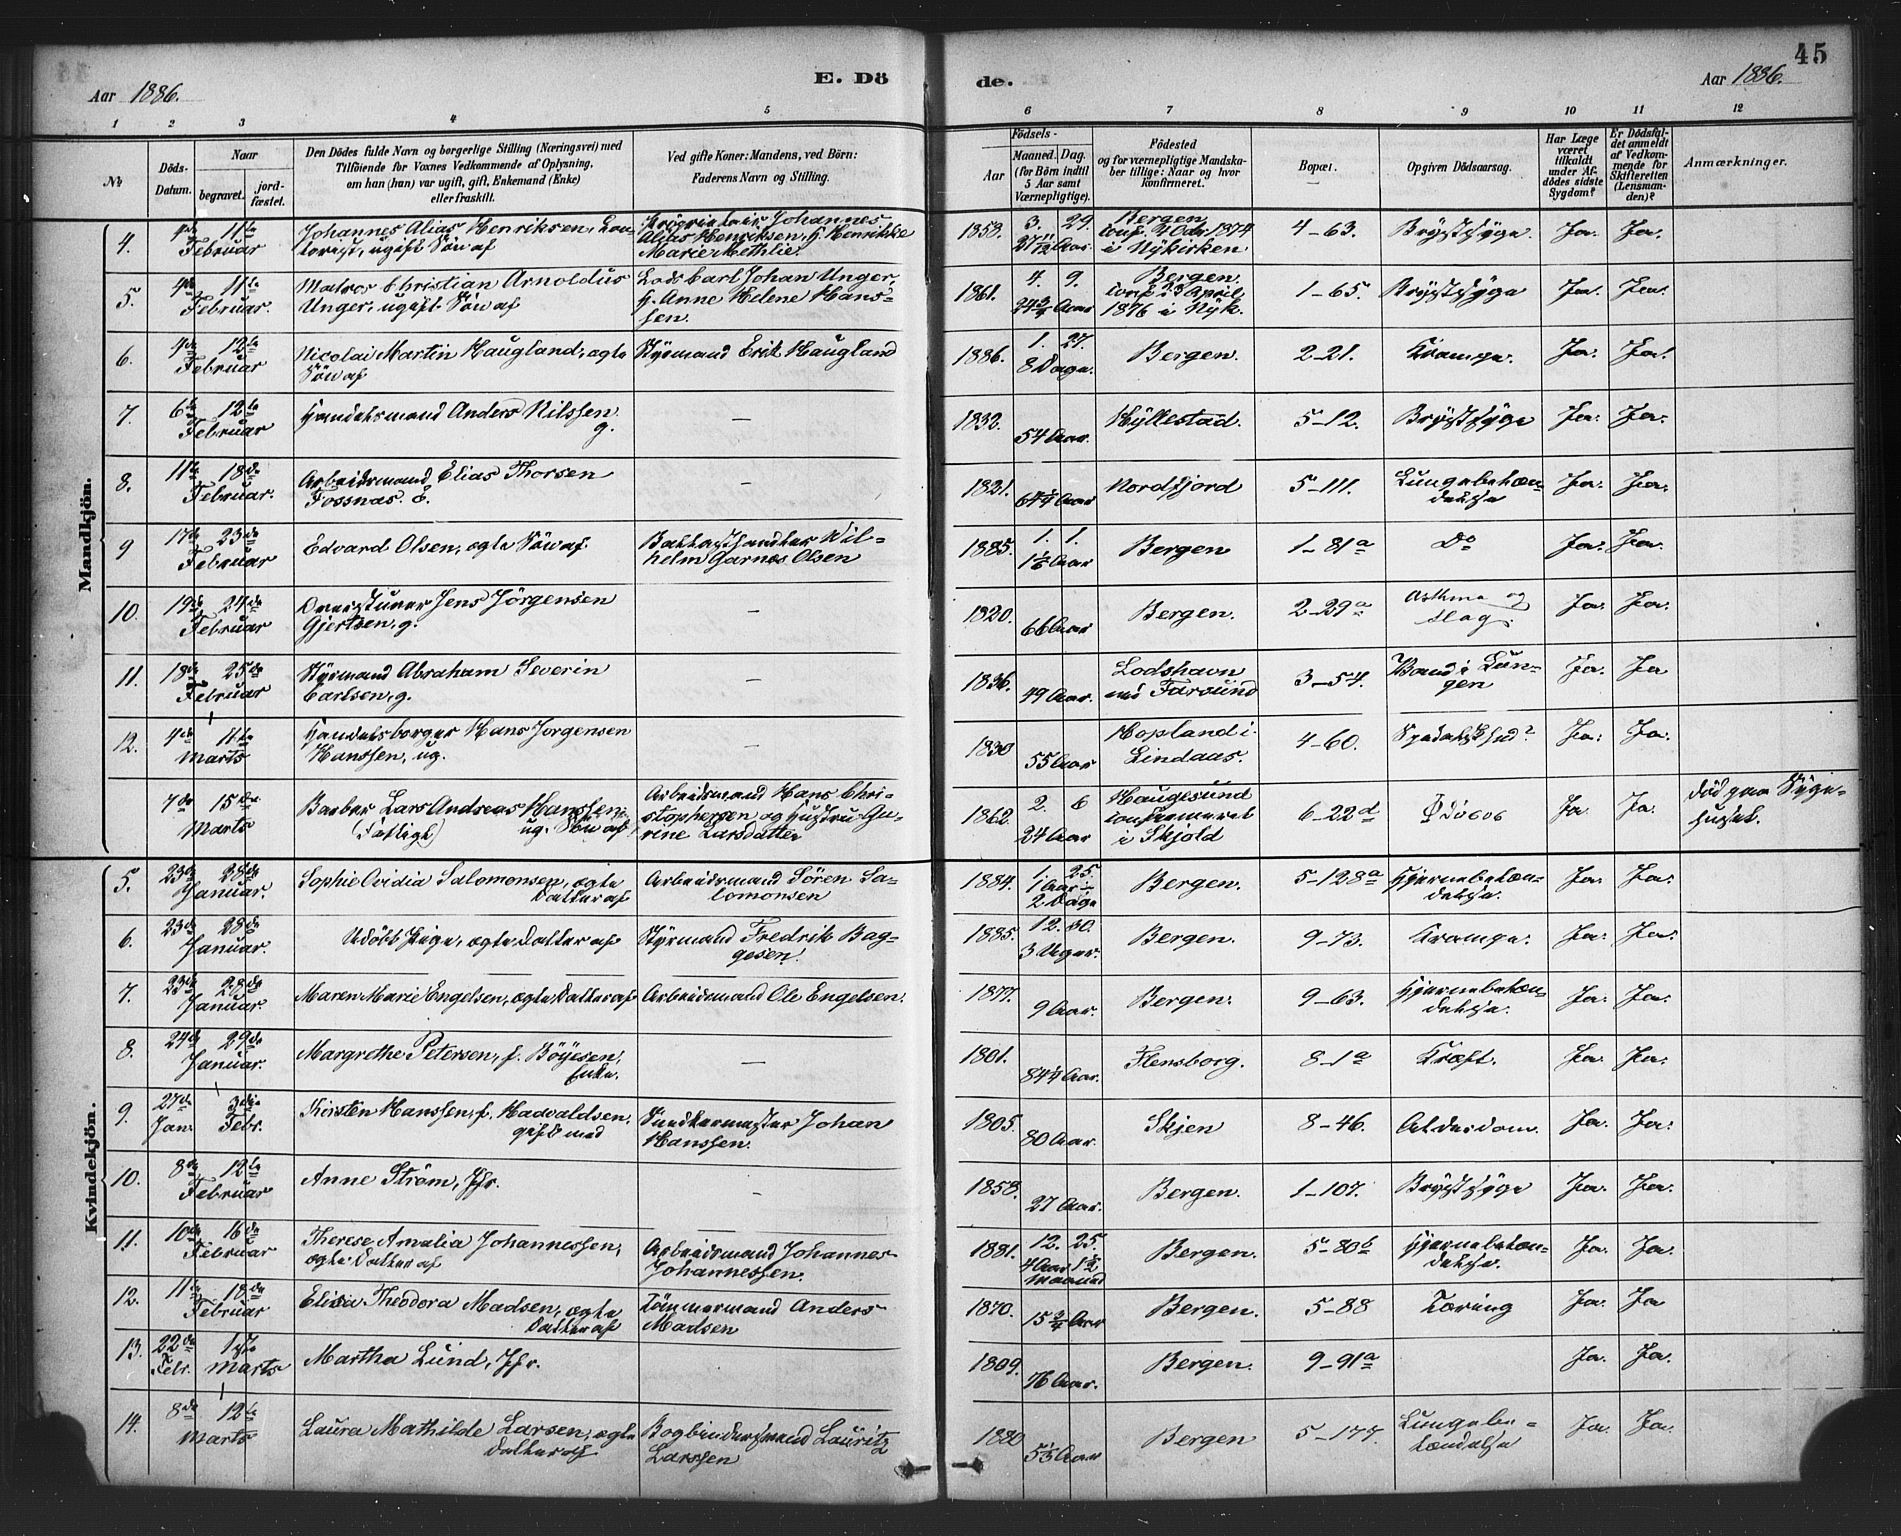 45
Aar 1886.
E. Dö
de.
Aar 1886.
1 2 3 4 5 6 7 8 9 10 11 12
No
Döds-Datum.
Naar
begravet.
jord-fæstet.
Den Dödes fulde Navn og borgerlige Stilling (Næringsvei) med
Tilföiende for Voxnes Vedkommende af Oplysning,
om han (hun) var ugift, gift, Enkemand (Enke)
eller fraskilt.
Ved gifte Koner: Mandens, ved Börn:
Faderens Navn og Stilling.
Födsels-
Aar
Maaned. Dag.
(for Börn indtil
5 Aar samt
Værnepligtige).
Födested
og for værnepligtige Mandska-
ber tillige: Naar og hvor
konfirmeret.
Bopæl.
Opgiven Dödsaarsag.
Har Læge
været
tilkaldt
under Af-
dödes sidste
Sygdom?
Er Dödsfal-
det anmeldt
af Vedkom-
mende for
Skifteretten
(Lensman-
den)?
Anmærkninger.
Mandkjön.
4. 4de 11te Februar Johannes Alias Henriksen, ugift Søn af Johannes Alias Henriksen, H. Henrikke Marie Methlie. 1858. 3. 29. 27 11/12 Aar Bergen conf. 1874 i Nykirken 4-63. Brystsyge. Ja. Ja.
5. 4de 11te Februar. Matros Christian Arnoldus Unger, ugift Søn af Lods Carl Johan Unger, H. Anne Helene Hans-sen. 1861. 4. 9. 24 3/4 Aar Bergen conf. 23 April 1876 i Nyk. 1-65. Brystsyge Ja. Ja.
6. 4de 12te Februar Nicolai Martin Haugland, ægte Søn af Styrmand Erik Haugland 1886. 1. 27. 8 Dage. Bergen. 2-21. Krampe. Ja. Ja.
7. 6te 12te Februar Handelsmand Anders Nilssen. g. — 1832. 54 Aar. Hyllestad. 5-12. Brystsyge Ja. Ja.
8. 11te 18de Februar. Arbeidsmand Elias Thorsen Fossnas. E. — 1821. 64 1/4 Aar Nordfjord 5-111. Lungebetæn-delse Ja. Ja.
9 17de 23de Februar Edvard Olsen, ægte Søn af Wil-helm Garnæs Olsen 1885. 1. 1. 1 1/6 Aar Bergen 1-81a Do Ja. Ja.
10. 19de 24de Februar Jens Jörgensen Gjertsen, g. — 1820. 66 Aar Bergen. 2-29a Asthma og Slag. Ja. Ja.
11. 18de 25de Februar Styrmand Abraham Severin Carlsen, g. — 1836. 49 Aar. Lodshavn ved Farsund 3-54. Vand i Lun-gen Ja. Ja
12. 4de 11te Marts Handelsborger Hans Jorgensen Hanssen, ug. — 1830 55 Aar Hopland i Lindaas. 4-60. Spedalskhed? Ja. Ja.
7de 15de Marts Barber Lars Andreas Hanssen, (Fattigl) ug. Søn af Arbeidsmand Hans Chri-stophersen og Hustru Gu-rine Larsdatter 1862. 2. 6 24 Aar Haugesund confirmeret i Skjold 6-22d Ja. Ja. död paa Syge-huset.
Kvindekjön.
5. 23de 28de Januar. Sophie Ovidia Salomonsen, ægte Datter af Arbeidsmand Sören Sa-lomonsen 1884. 1. 25. 1 Aar 2 Dage Bergen. 5-128a Hjernebetæn-delse. Ja. Ja.
6. 23de 28de Januar. Udöbt Pige, ægte Datter af Styrmand Fredrik Bag-gesen. 1885. 12. 30. 3 Uger. Bergen. 9-73. Krampe. Ja. Ja.
7. 23de 28de Januar. Maren Marie Engelsen, ægte Datter af Arbeidsmand Ole Engelsen. 1877. 9 Aar. Bergen. 9-63. Hjernebetæn-delse. Ja. Ja.
8. 24de 29de Januar. Margrethe Petersen, f. Böyesen, Enke. — 1801. 84 1/4 Aar. Flensborg. 8-1a Kræft. Ja. Ja.
9. 27de Jan. 3die Febr. Kirsten Hanssen, f. Hadvaldsen, gift med Johan Hanssen. 1805. 80 Aar. Skjen 8-46. Alderdom. Ja. Ja.
10. 8de 12te Februar Anne Ström, Jfr. — 1858. 27 Aar. Bergen. 1-107. Brystsyge Ja. Ja.
11. 10de 16de Februar Therese Amalia Johannessen, ægte Datter af Arbeidsmand Johannes Johannessen. 1881. 12. 25. 4 Aar 1 1/2 Maaned Bergen. 5-80b Hjernebetæn-delse. Ja. Ja.
12. 11te 18de Februar Elisa Theodora Madsen, ægte Datter af Tömmermand Anders Madsen 1870. 15 3/4 Aar Bergen. 5-88 Tæring Ja. Ja
13. 22de Febr. Marts Martha Lund, Jfr. 1809. 76 Aar. Bergen. 9-91a Ja. Ja.
14. 8de 12te Marts Laura Mathilde Larsen, ægte Datter af Bogbindersvend Lauritz Larssen 1880 5 1/3 Aar Bergen 5-177. Lungebe-tændelse Ja. Ja.